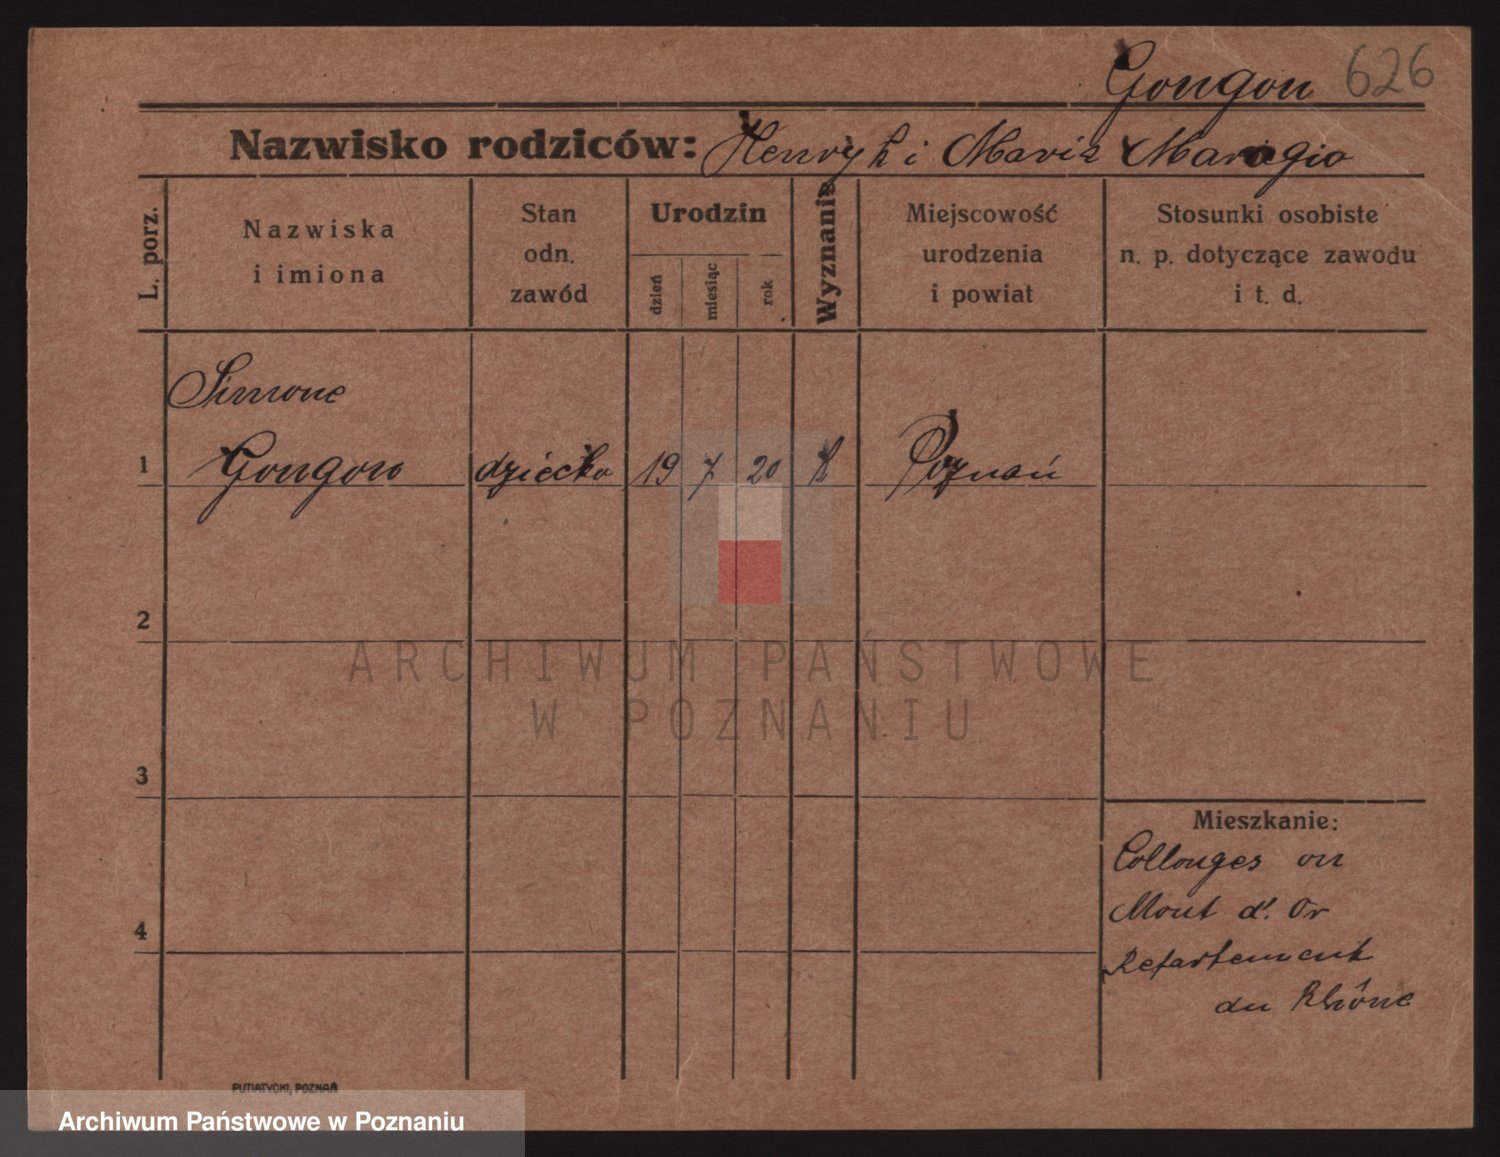 Gongon 626
Nazwisko rodziców: Henryk i Maria Maragio
L. porz.
Nazwiska
i imiona
Stan
odn.
zawód
Urodzin
dzień
miesiąc
rok
Wyznanie
Miejscowość
urodzenia
i powiat
Stosunki osobiste
n. p. dotyczące zawodu
i t. d.
Simone
1 Gongon dziecko 19 7 20 k Poznań
2
ARCHIWUM PAŃSTWOWE
W POZNANIU
3
Mieszkanie:
Collonges on
4
Mout d'. Or
Departement
du Rhône
PUTIATYCKI, POZNAŃ
Archiwum Państwowe w Poznaniu